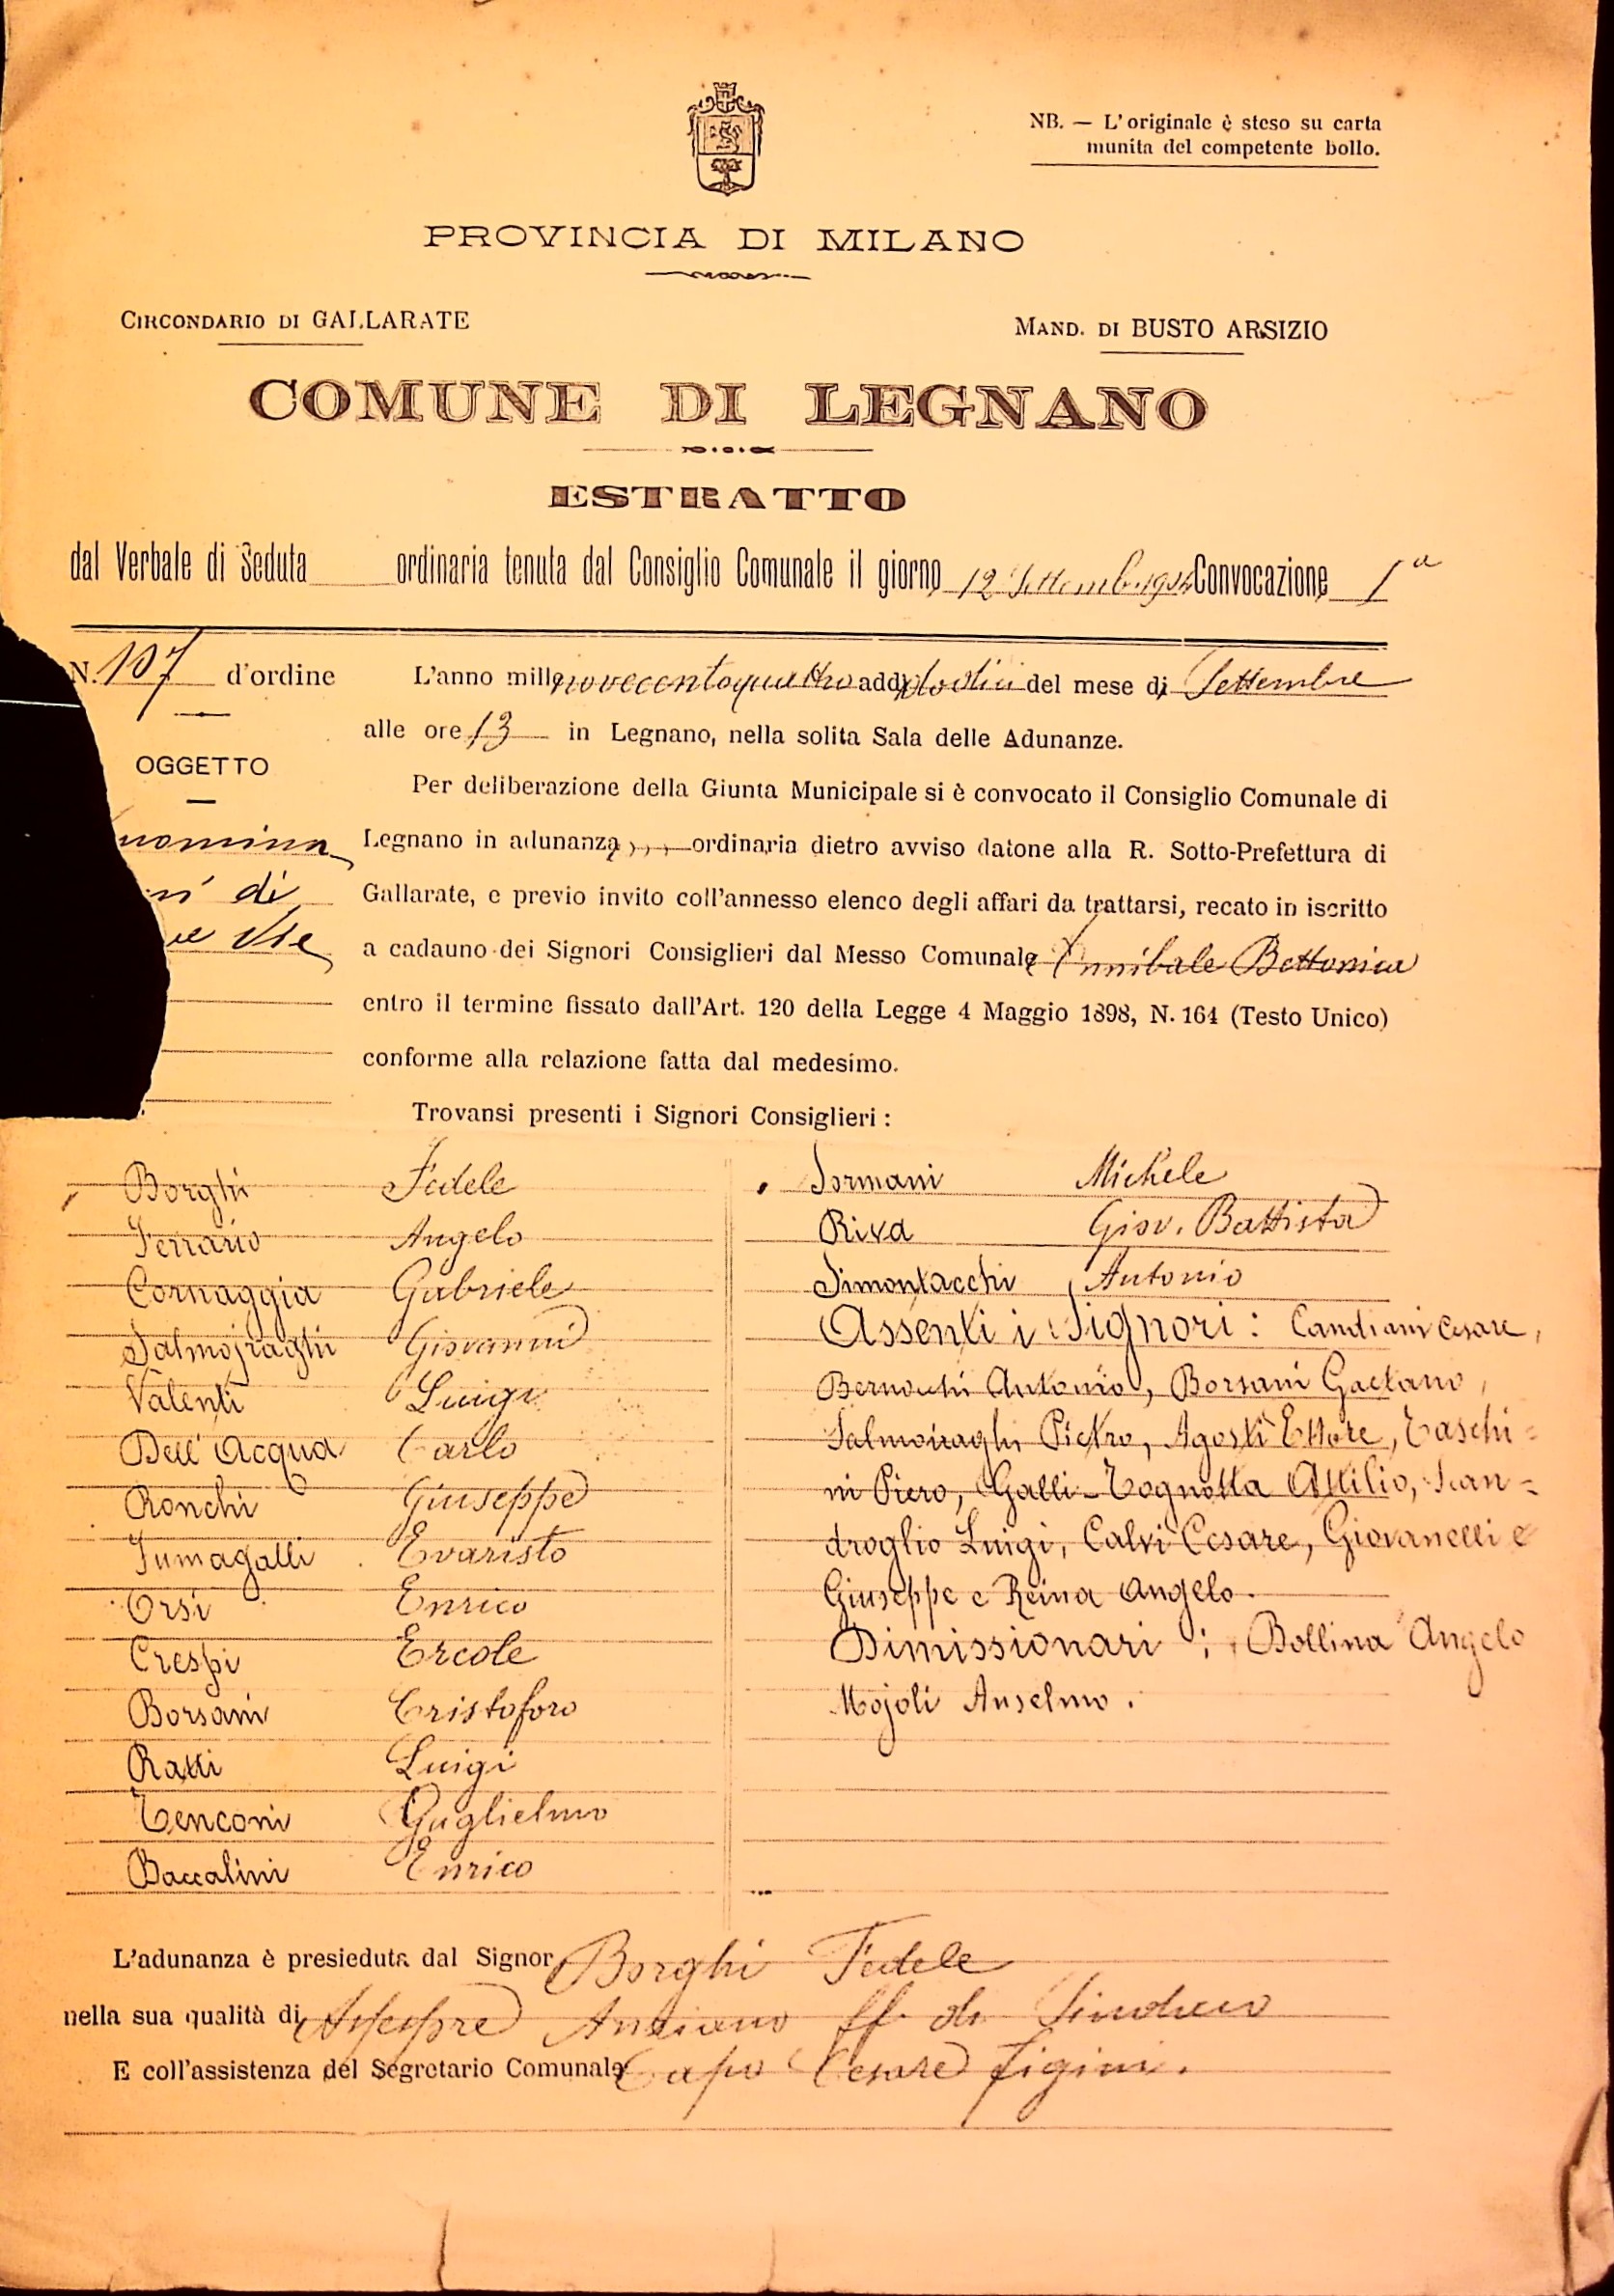 NB. — L'originale è steso su carta
munita del competente bollo.
PROVINCIA DI MILANO
CIRCONDARIO DI GALLARATE
MAND. DI BUSTO ARSIZIO
COMUNE DI LEGNANO
ESTRATTO
dal Verbale di Seduta ordinaria tenuta dal Consiglio Comunale il giorno 12 Settemb. 1904 Convocazione 1ª
N. 107 d'ordine
OGGETTO
nomina
ni di
ue Vie
L'anno mille novecentoquattro addì dodici del mese di Settembre
alle ore 13 in Legnano, nella solita Sala delle Adunanze.
Per deliberazione della Giunta Municipale si è convocato il Consiglio Comunale di
Legnano in adunanza ,,, ordinaria dietro avviso datone alla R. Sotto-Prefettura di
Gallarate, e previo invito coll'annesso elenco degli affari da trattarsi, recato in iscritto
a cadauno dei Signori Consiglieri dal Messo Comunale Annibale Bottonica
entro il termine fissato dall'Art. 120 della Legge 4 Maggio 1898, N. 164 (Testo Unico)
conforme alla relazione fatta dal medesimo.
Trovansi presenti i Signori Consiglieri :
Borghi Fedele
Ferrario Angelo
Cornaggia Gabriele
Salmojraghi Giovanni
Valenti Luigi
Dell' Acqua Carlo
Ronchi Giuseppe
Fumagalli Evaristo
Orsi Enrico
Crespi Ercole
Borsani Cristoforo
Ratti Luigi
Tenconi Guglielmo
Baccalini Enrico
Sormani Michele
Riva Giov. Battista
Simontacchi Antonio
Assenti i Signori : Candiani Cesare,
Bernocchi Antonio, Borsani Gaetano,
Salmoiraghi Pietro, Agosti Ettore, Taschi=
ni Piero, Galli-Tognotta Attilio, Scan=
droglio Luigi, Calvi Cesare, Giovanelli e
Giuseppe e Reina Angelo.
Dimissionari : Bollina Angelo
Mojoli Anselmo.
L'adunanza è presieduta dal Signor Borghi Fedele
nella sua qualità di Assessore Anziano ff. di Sindaco
E coll'assistenza del Segretario Comunale Capo Cesare Figini.